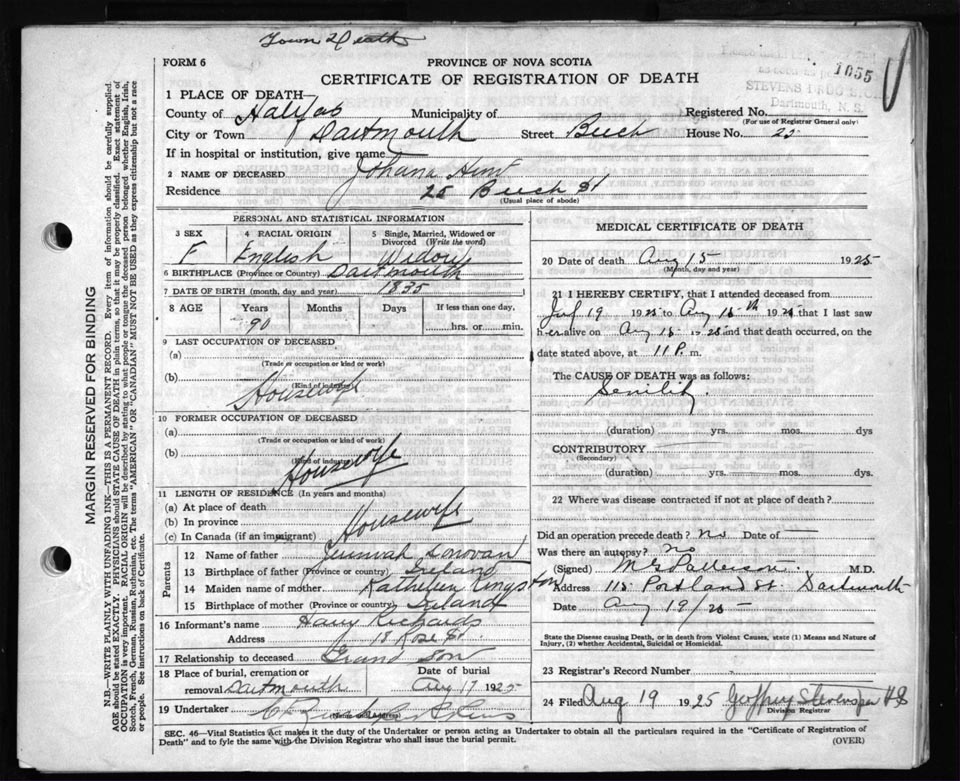 Town Death
FORM 6
PROVINCE OF NOVA SCOTIA
CERTIFICATE OF REGISTRATION OF DEATH
1055
STEVENS
Dartmouth, N. S.
1 PLACE OF DEATH
County of Halifax Municipality of Registered No.
(For use of Registrar General only)
City or Town Dartmouth Street Beech House No. 25
If in hospital or institution, give name
2 NAME OF DECEASED Johana Hunt
Residence 25 Beech St
(Usual place of abode)
PERSONAL AND STATISTICAL INFORMATION
3 SEX 4 RACIAL ORIGIN 5 Single, Married, Widowed or Divorced (Write the word)
F English Widow
6 BIRTHPLACE (Province or Country) Dartmouth
7 DATE OF BIRTH (month, day and year) 1835
8 AGE Years Months Days If less than one day,
90 hrs. or min.
9 LAST OCCUPATION OF DECEASED
(a)
(Trade or occupation or kind of work)
(b)
(Kind of industry)
Housewife
10 FORMER OCCUPATION OF DECEASED
(a)
(Trade or occupation or kind of work)
(b)
(Kind of industry)
Housewife
11 LENGTH OF RESIDENCE (In years and months)
(a) At place of death
(b) In province
(c) In Canada (if an immigrant) Housewife
Parents
12 Name of father Jeremiah Donovan
13 Birthplace of father (Province or country) Ireland
14 Maiden name of mother Kathleen Kingston
15 Birthplace of mother (Province or Country) Ireland
16 Informant's name Harry Richards
Address 18 Rose St.
17 Relationship to deceased Grand Son
18 Place of burial, cremation or removal Dartmouth Date of burial Aug 17 1925
19 Undertaker
MEDICAL CERTIFICATE OF DEATH
20 Date of death Aug 15 1925
(Month, day and year)
21 I HEREBY CERTIFY, that I attended deceased from
19 1925 to Aug 15th 192 that I last saw
her alive on Aug 15 1925 and that death occurred, on the
date stated above, at 11 P. m.
The CAUSE OF DEATH was as follows:
Senility
(duration) yrs. mos. dys
CONTRIBUTORY
(Secondary)
(duration) yrs. mos. dys.
22 Where was disease contracted if not at place of death?
Did an operation precede death? No Date of
Was there an autopsy? No
(Signed) Patterson M.D.
Address 115 Portland St. Dartmouth
Date Aug 19/25
State the Disease causing Death, or in death from Violent Causes, state (1) Means and Nature of
Injury, (2) whether Accidental, Suicidal or Homicidal.
23 Registrar's Record Number
24 Filed Aug 19 1925 Geoffrey Stevens
Division Registrar
SEC. 46—Vital Statistics Act makes it the duty of the Undertaker or person acting as Undertaker to obtain all the particulars required in the "Certificate of Registration of
Death" and to fyle the same with the Division Registrar who shall issue the burial permit.
(OVER)
MARGIN RESERVED FOR BINDING
N.B.—WRITE PLAINLY WITH UNFADING INK—THIS IS A PERMANENT RECORD. Every item of information should be carefully supplied
AGE should be stated EXACTLY. PHYSICIANS should STATE CAUSE OF DEATH in plain terms, so that it may be properly classified. Exact statement of
OCCUPATION is very important. RACIAL ORIGIN will be described by stating to what people or tongue the deceased person belonged whether English, Irish,
Scotch, French, German, Russian, Ruthenian, etc. The terms "AMERICAN" OR "CANADIAN" MUST NOT BE USED as they express citizenship but not a race
or people. See instructions on back of Certificate.